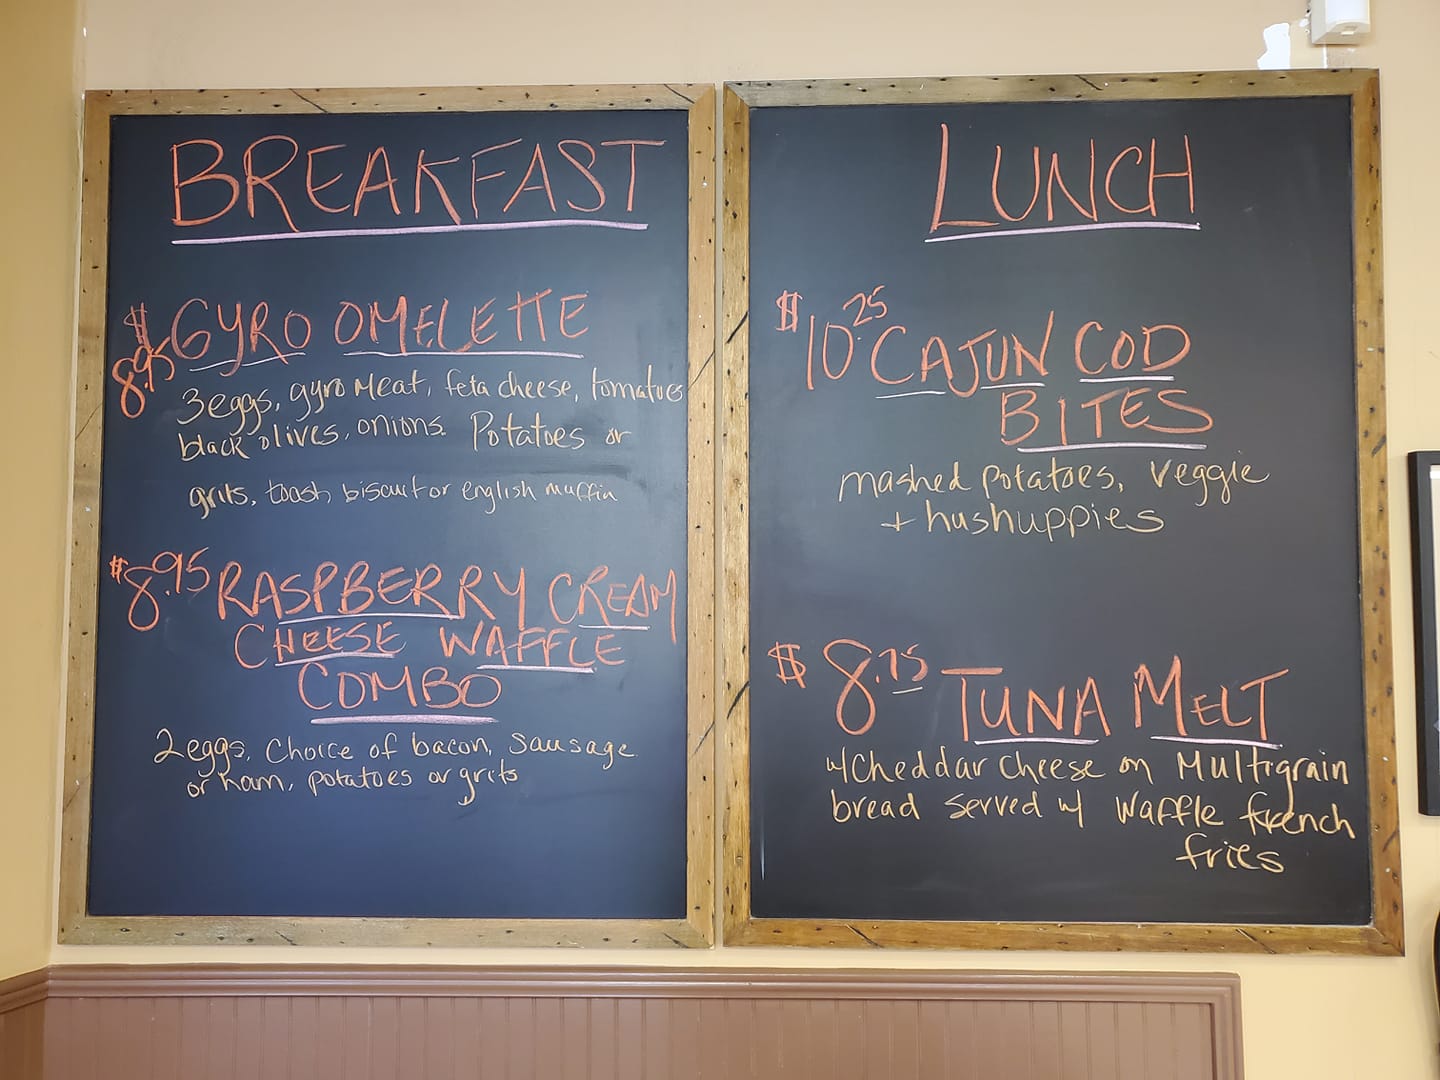 BREAKFAST
$8.95 GYRO OMELETTE
3 eggs, gyro Meat, feta cheese, tomatoes
black olives, onions. Potatoes or
grits, toast, biscuit or english muffin
$8.95 RASPBERRY CREAM
CHEESE WAFFLE
COMBO
2 eggs, Choice of bacon, sausage
or ham, potatoes or grits
LUNCH
$10.25 CAJUN COD
BITES
mashed potatoes, veggie
+ hushuppies
$8.75 TUNA MELT
w/ Cheddar Cheese on Multigrain
bread served w/ Waffle french
fries